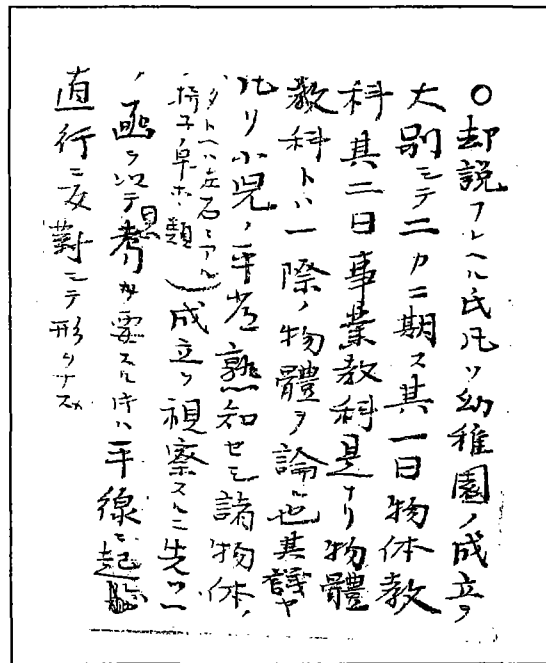 ○却説フレヘル氏凡ソ幼稚園ノ成立ヲ
大別シテ二カニ期ス其一曰物体教
科其二曰事業教科是ナリ物體
教科トハ一際ノ物體ヲ論ル也其議ヤ
凡ソ小児ノ平者熟知セシ諸物体ノ
(タトヘハ左右ニアル
椅子ノ卓ホノ類)成立ヲ視察スルニ先ツ一
ノ ヲ以テ思考 要スル時ハ平線ニ起
直行ニ反對シテ形ヲナス